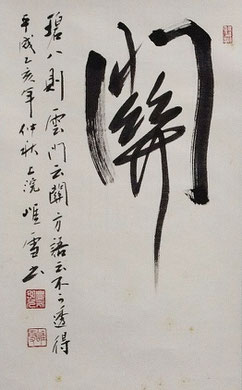 關
碧八則 雲門云關 方語云不可透得
平成乙亥年仲秋上浣 唯雪書